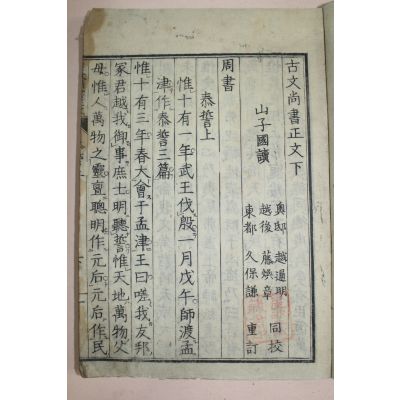 古文尚書正文下
山子國讀
奧邸 越通明
越後 藤煥章 同校
東都 久保謙 重訂
周書
泰誓上
惟十有一年武王伐殷一月戊午師渡孟
津作泰誓三篇
惟十有三年春大會于孟津王曰嗟我友邦
冢君越我御事庶士明聽誓惟天地萬物父
母惟人萬物之靈亶聰明作元后元后作民